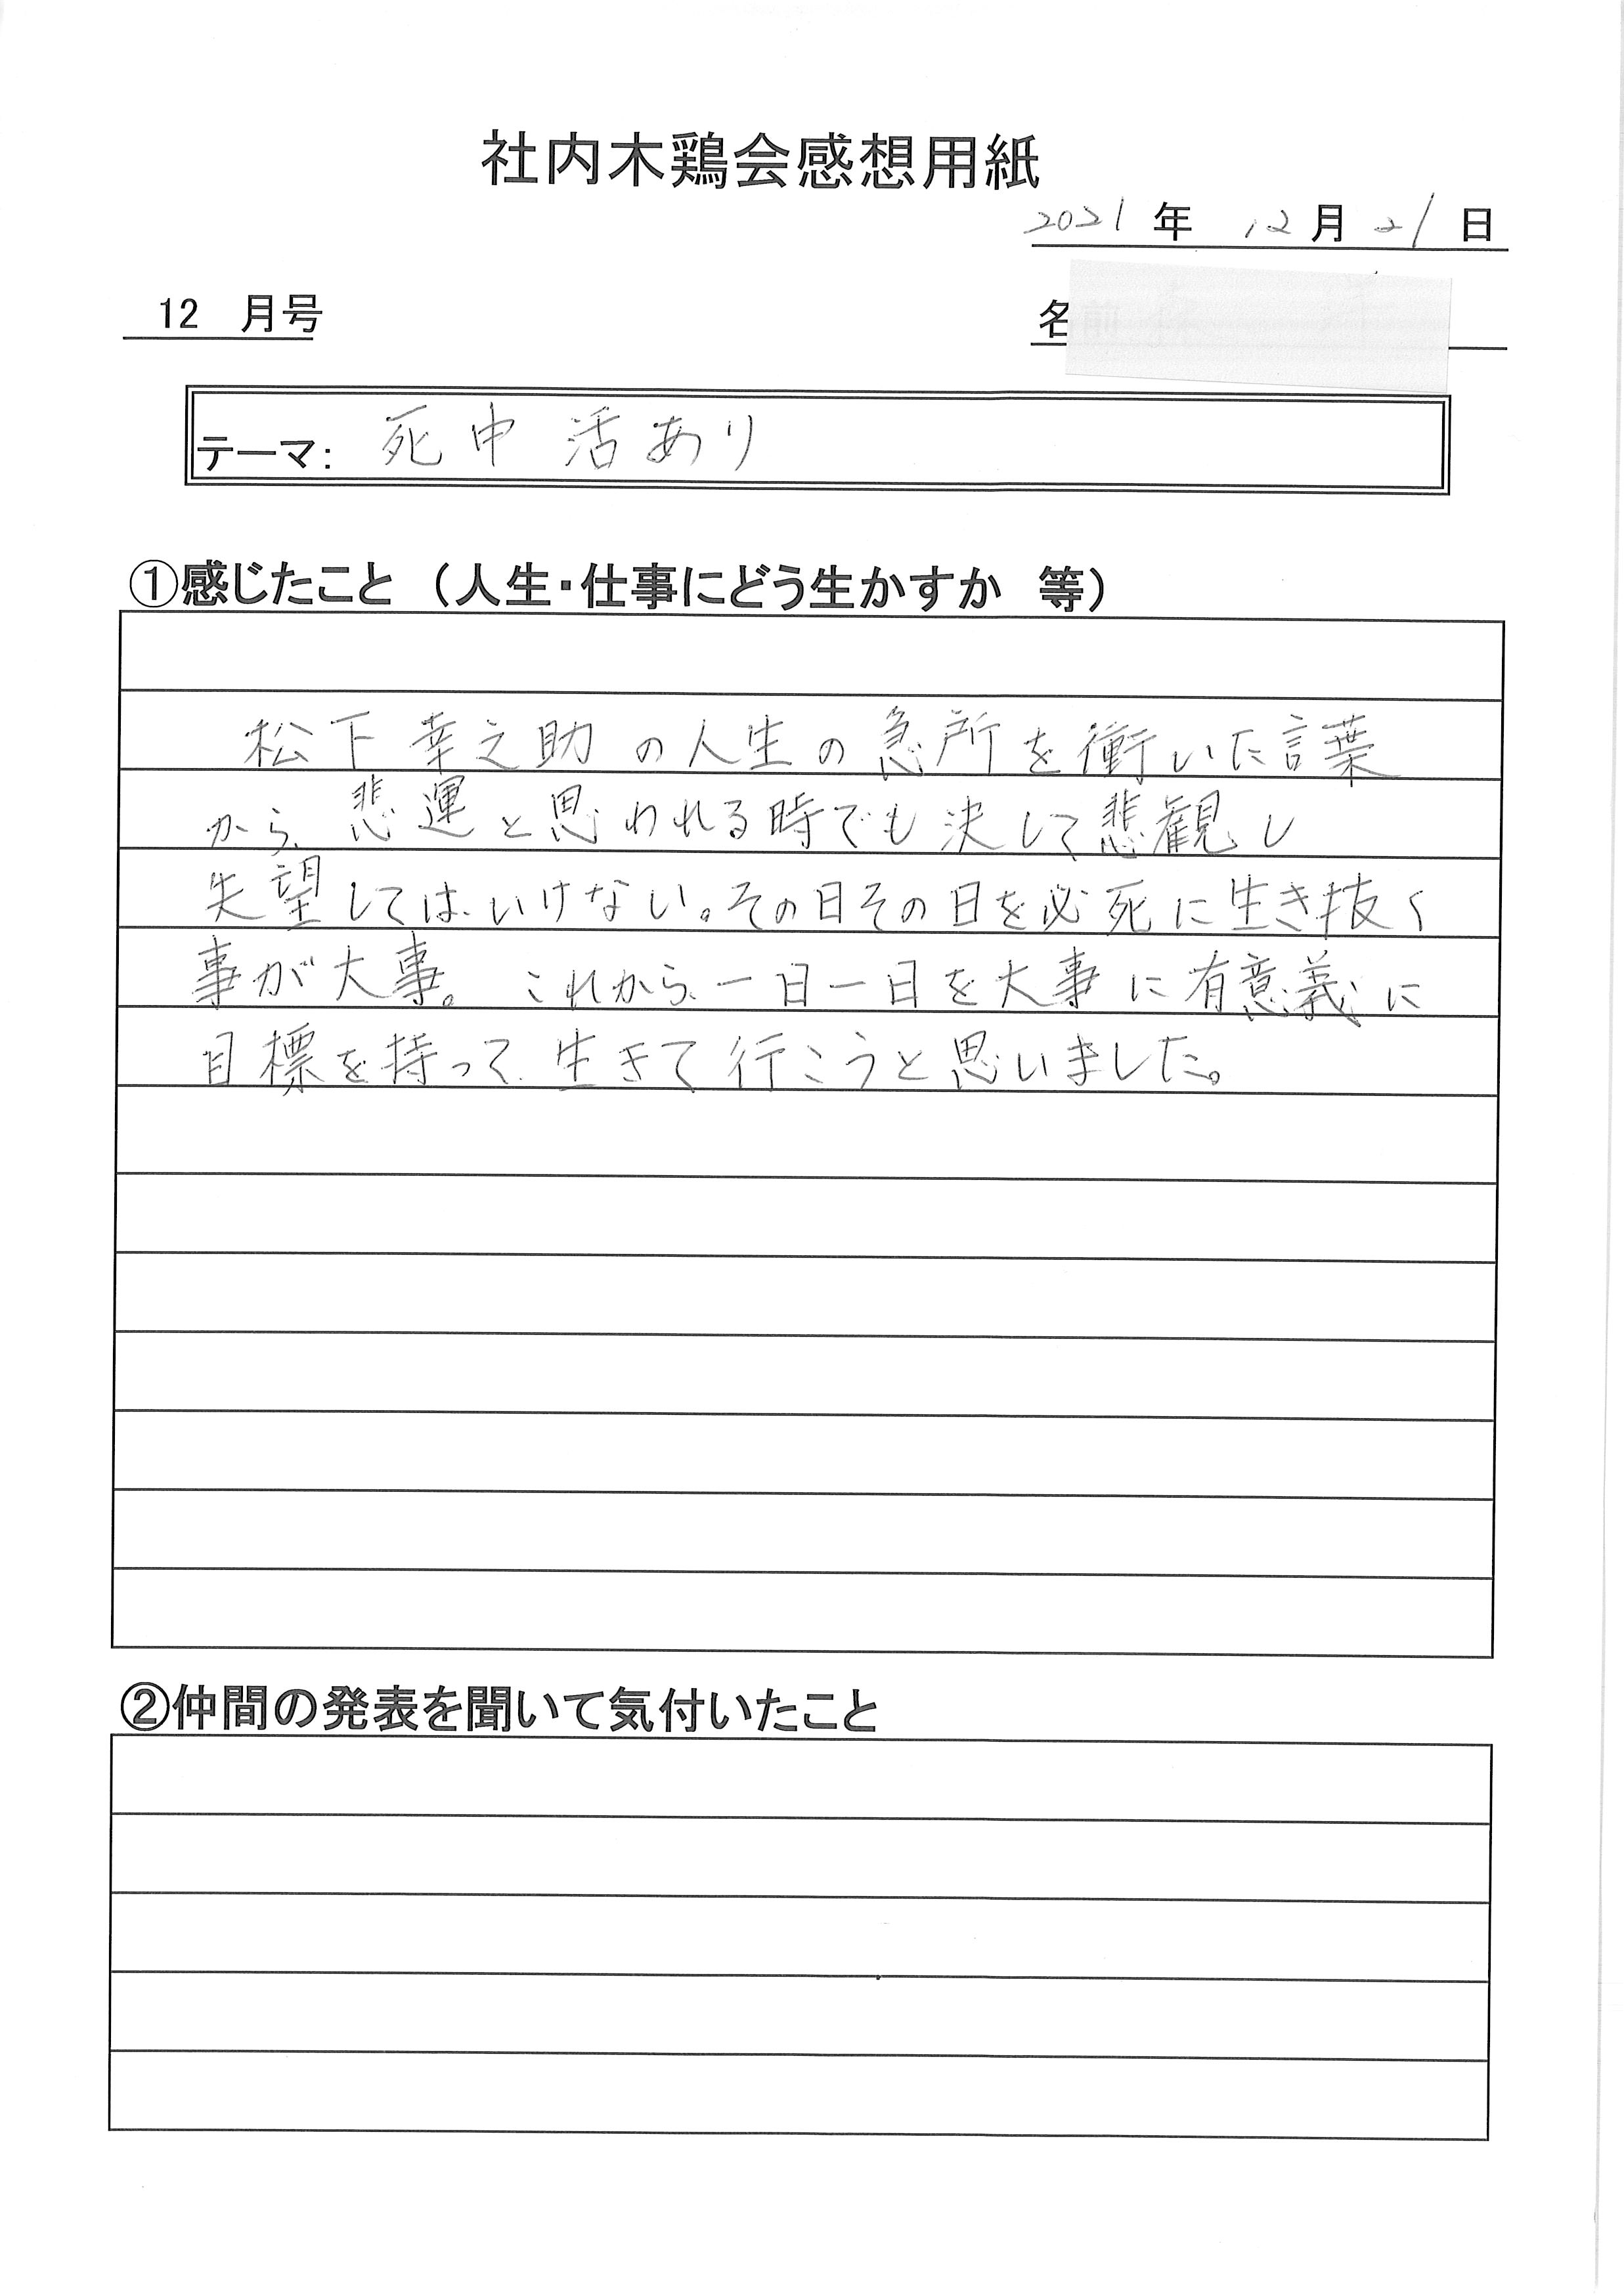 社内木鶏会感想用紙
2021年 12月21日
12 月号
名
テーマ: 死中活あり
①感じたこと (人生・仕事にどう生かすか 等)
松下幸之助の人生の急所を衝いた言葉
から、悲運と思われる時でも決して悲観し
失望してはいけない。その日その日を必死に生き抜く
事が大事。これから、一日一日を大事に有意義に
目標を持って生きて行こうと思いました。
②仲間の発表を聞いて気付いたこと